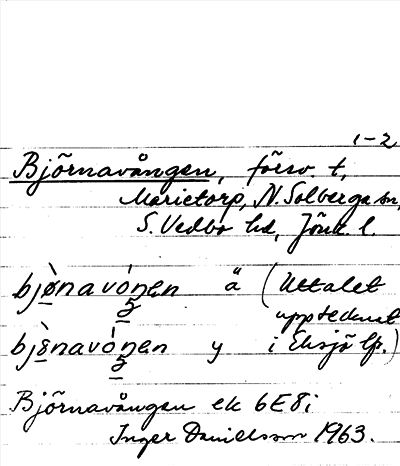 1-2
Björnavången, försv. t,
Marietorp, N. Solberga sn,
S. Vedbo hd, Jönk. l.
bjønavóŋen ä (Uttalet
5 upptecknat
bjɛ̀navóŋen y i Eksjö lfs.)
5
Björnavången ek 6E8i
Inger Danielsson 1963.